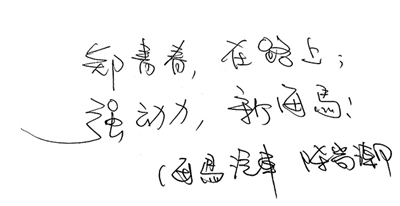 郑青春,在路上;
强动力,新海马!
(海马汽车 陈高潮